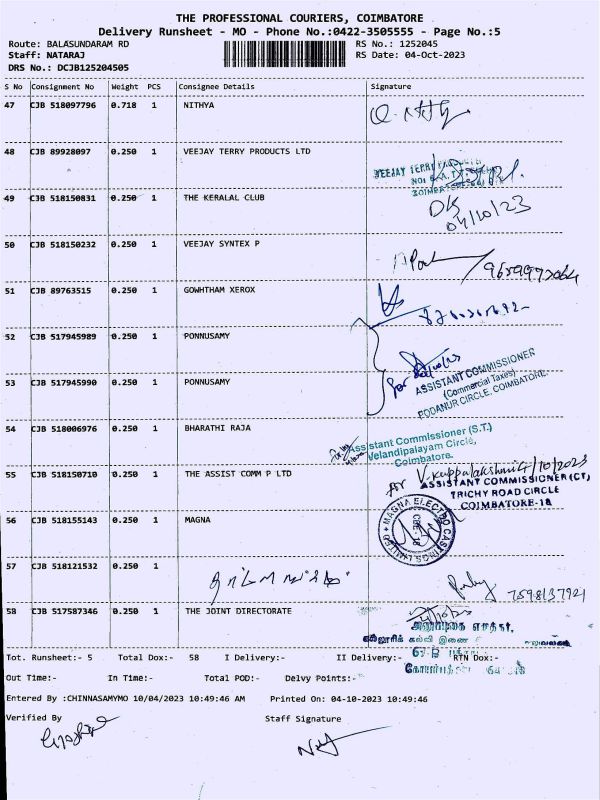 THE PROFESSIONAL COURIERS, COIMBATORE
Delivery Runsheet - MO - Phone No.:0422-3505555 - Page No.:5
Route: BALASUNDARAM RD RS No.: 1252045
Staff: NATARAJ RS Date: 04-Oct-2023
DRS No.: DCJB125204505
S No Consignment No Weight PCS Consignee Details Signature
47 CJB 518097796 0.718 1 NITHYA
48 CJB 89928097 0.250 1 VEEJAY TERRY PRODUCTS LTD
VEEJAY TERRY PRODUCTS
49 CJB 518150831 0.250 1 THE KERALAL CLUB
04/10/23
50 CJB 518150232 0.250 1 VEEJAY SYNTEX P
51 CJB 89763515 0.250 1 GOWHTHAM XEROX
52 CJB 517945989 0.250 1 PONNUSAMY
53 CJB 517945990 0.250 1 PONNUSAMY
for
ASSISTANT COMMISSIONER
(Commercial Taxes)
PODANUR CIRCLE, COIMBATORE.
54 CJB 518006976 0.250 1 BHARATHI RAJA
Assistant Commissioner (S.T.)
Velandipalayam Circle,
Coimbatore.
55 CJB 518150710 0.250 1 THE ASSIST COMM P LTD
4/10/2023
ASSISTANT COMMISSIONER (CT)
TRICHY ROAD CIRCLE
COIMBATORE-18
56 CJB 518155143 0.250 1 MAGNA
MAGNA ELECTRO CASTINGS LIMITED
57 CJB 518121532 0.250 1
7598137921
58 CJB 517587346 0.250 1 THE JOINT DIRECTORATE
Tot. Runsheet:- 5 Total Dox:- 58 I Delivery:- II Delivery:- RTN Dox:-
Out Time:- In Time:- Total POD:- Delvy Points:-
Entered By :CHINNASAMYMO 10/04/2023 10:49:46 AM Printed On: 04-10-2023 10:49:46
Verified By Staff Signature